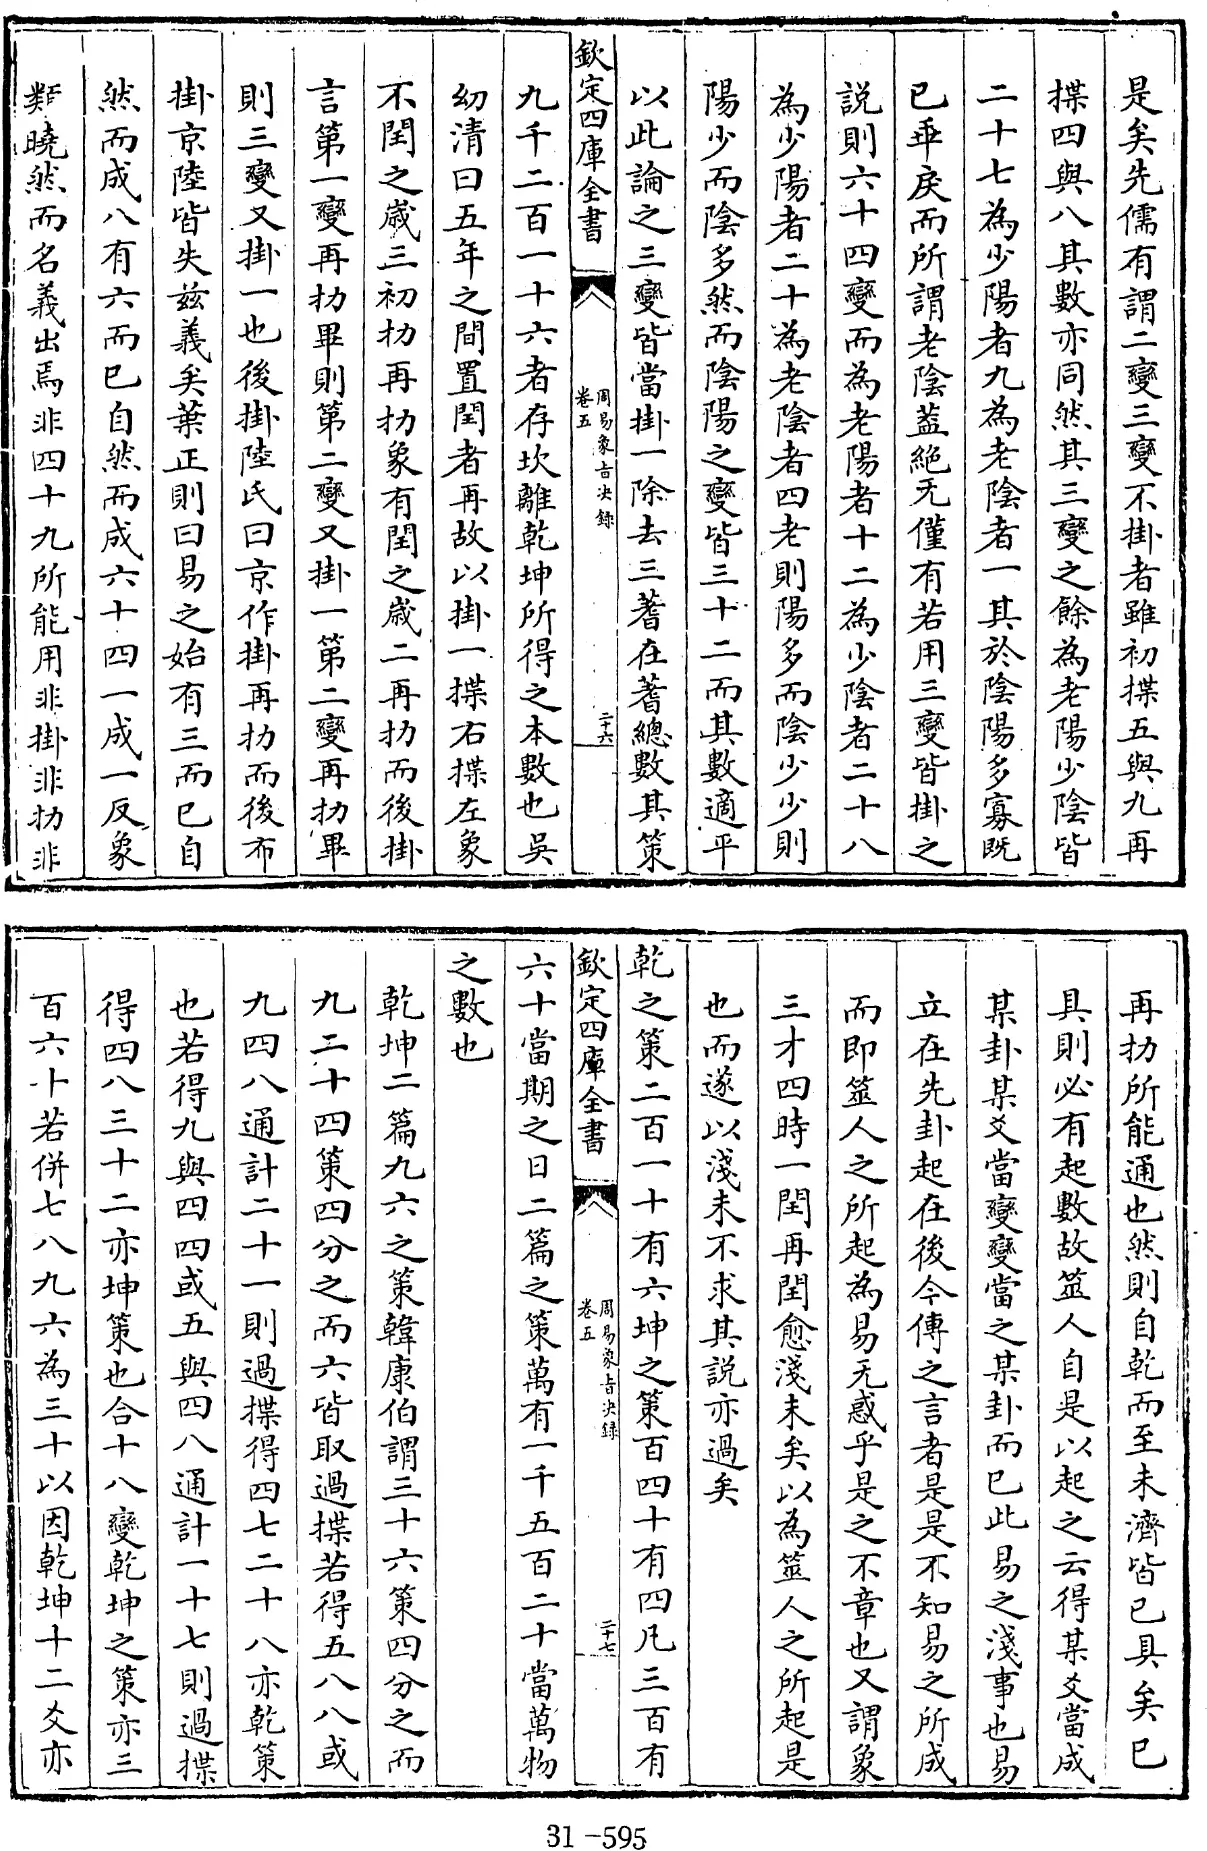 是矣先儒有謂二變三變不掛者雖初揲五與九再
揲四與八其數亦同然其三變之餘為老陽少陰皆
二十七為少陽者九為老陰者一其於陰陽多寡既
已乖戾而所謂老陰葢絶无僅有若用三變皆掛之
説則六十四變而為老陽者十二為少陰者二十八
為少陽者二十為老陰者四老則陽多而陰少少則
陽少而陰多然而陰陽之變皆三十二而其數適平
以此論之三變皆當掛一除去三蓍在蓍總數其策
欽定四庫全書
周易象旨决録
卷五
二十六
九千二百一十六者存坎離乾坤所得之本數也吳
幼清曰五年之間置閏者再故以掛一揲右揲左象
不閏之歲三初扐再扐象有閏之歲二再扐而後掛
言第一變再扐畢則第二變又掛一第二變再扐畢
則三變又掛一也後掛陸氏曰京作掛再扐而後布
掛京陸皆失兹義矣葉正則曰易之始有三而已自
然而成八有六而已自然而成六十四一成一反象
類曉然而名義出焉非四十九所能用非掛非扐非
再扐所能通也然則自乾而至未濟皆已具矣已
具則必有起數故筮人自是以起之云得某爻當成
某卦某爻當變變當之某卦而已此易之淺事也易
立在先卦起在後今傳之言者是是不知易之所成
而即筮人之所起為易无惑乎是之不章也又謂象
三才四時一閏再閏愈淺末矣以為筮人之所起是
也而遂以淺末不求其説亦過矣
乾之策二百一十有六坤之策百四十有四凡三百有
欽定四庫全書
周易象旨决録
卷五
二十七
六十當期之日二篇之策萬有一千五百二十當萬物
之數也
乾坤二篇九六之策韓康伯謂三十六策四分之而
九二十四策四分之而六皆取過揲若得五八八或
九四八通計二十一則過揲得四七二十八亦乾策
也若得九與四四或五與四八通計一十七則過揲
得四八三十二亦坤策也合十八變乾坤之策亦三
百六十若併七八九六為三十以因乾坤十二爻亦
31-595